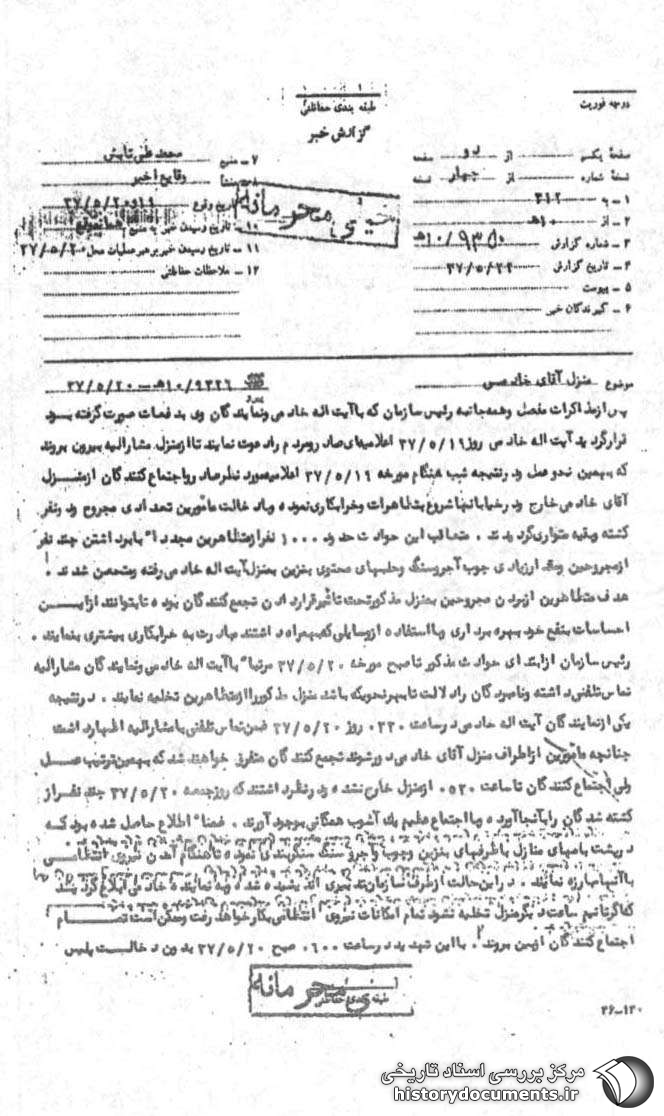 درجه فوریت
طبقه بندی حفاظتی
گزارش خبر
صفحهٔ یکم از دو صفحه
نسخهٔ شماره از چهار نسخه
۱ ـ به ۳۱۲
۲ ـ از ۱۰ ه‍
۳ ـ شماره گزارش ۱۰/۹۳۵۰ ه‍
۴ ـ تاریخ گزارش ۳۷/۵/۲۲
۵ ـ پیوست
۶ ـ گیرندگان خبر
۷ ـ منبع محمدعلی تابش
منشأ وقایع اخیر
تاریخ وقوع ۱۹ و ۳۷/۵/۲۰
۱۰ ـ تاریخ رسیدن خبر به منبع
۱۱ ـ تاریخ رسیدن خبر برهبر عملیات محل ۳۷/۵/۲۰
۱۲ ـ ملاحظات حفاظتی
خیلی محرمانه
موضوع منزل آقای خادمی
۱۰/۹۳۲۶ ه‍ ـ ۳۷/۵/۲۰
پس از مذاکرات مفصل و همه جانبه رئیس سازمان که با آیت اله خادمی و نمایندگان وی بدفعات صورت گرفته بود
قرار گردید آیت اله خادمی روز ۳۷/۵/۱۹ اعلامیه‌ای صادر و مردم را دعوت نمایند تا از منزل مشارالیه بیرون بروند
که بهمین نحو عمل و در نتیجه شب هنگام مورخه ۳۷/۵/۱۹ اعلامیه مورد نظر صادر و اجتماع کنندگان از منزل
آقای خادمی خارج و در خیابانها شروع بتظاهرات و خرابکاری نموده و با دخالت مأمورین تعدادی مجروح و دو نفر
کشته و بقیه متواری گردیدند . متعاقب این حوادث حدود ۱۰۰۰ نفر از متظاهرین مجدداً با برداشتن چند نفر
از مجروحین و مقدار زیادی چوب آجر و سنگ و حلبهای محتوی بنزین بمنزل آیت اله خادمی رفته و متحصن شدند .
هدف متظاهرین از بردن مجروحین بمنزل مذکور تحت تأثیر قرار دادن تجمع کنندگان بوده تا بتوانند از این
احساسات بنفع خود بهره برداری و با استفاده از وسایلی که بهمراه داشتند مبادرت به خرابکاری بیشتری بنمایند .
رئیس سازمان از ابتدای حوادث مذکور تا صبح مورخه ۳۷/۵/۲۰ مرتباً با آیت اله خادمی و نمایندگان مشارالیه
تماس تلفنی داشته و نامبردگان را دلالت تا بهر نحویکه باشد منزل مذکور را از متظاهرین تخلیه نمایند . در نتیجه
یکی از نمایندگان آیت اله خادمی در ساعت ۰۳۳۰ روز ۳۷/۵/۲۰ ضمن تماس تلفنی با مشارالیه اظهار داشت
چنانچه مأمورین از اطراف منزل آقای خادمی دور شوند تجمع کنندگان متفرق خواهند شد که بهمین ترتیب عمل
ولی اجتماع کنندگان تا ساعت ۰۵۳۰ از منزل خارج نشده و در نظر داشتند که روز جمعه ۳۷/۵/۲۰ چند نفر از
کشته شدگان را بآنجا آورده و با اجتماع عظیم یک آشوب همگانی بوجود آورند . ضمناً اطلاع حاصل شده بود که
در پشت بامهای منازل با ظرفهای بنزین و چوب و آجر و سنگ سنگربندی نموده تا هنگام آمدن نیروی انتظامی
با آنها مبارزه نمایند . در این حالت از طرف سازمان تدبیری اندیشیده شد و به نماینده خادمی ابلاغ گردید
که اگر تا نیم ساعت دیگر منزل تخلیه نشود تمام امکانات نیروی انتظامی بکار خواهد رفت و ممکن است تمام
اجتماع کنندگان از بین بروند . با این تهدید در ساعت ۰۶۰۰ صبح ۳۷/۵/۲۰ بدون دخالت پلیس
طبقه بندی حفاظتی
محرمانه
۳۶ـ۱۲۰
مرکز بررسی اسناد تاریخی
historydocuments.ir